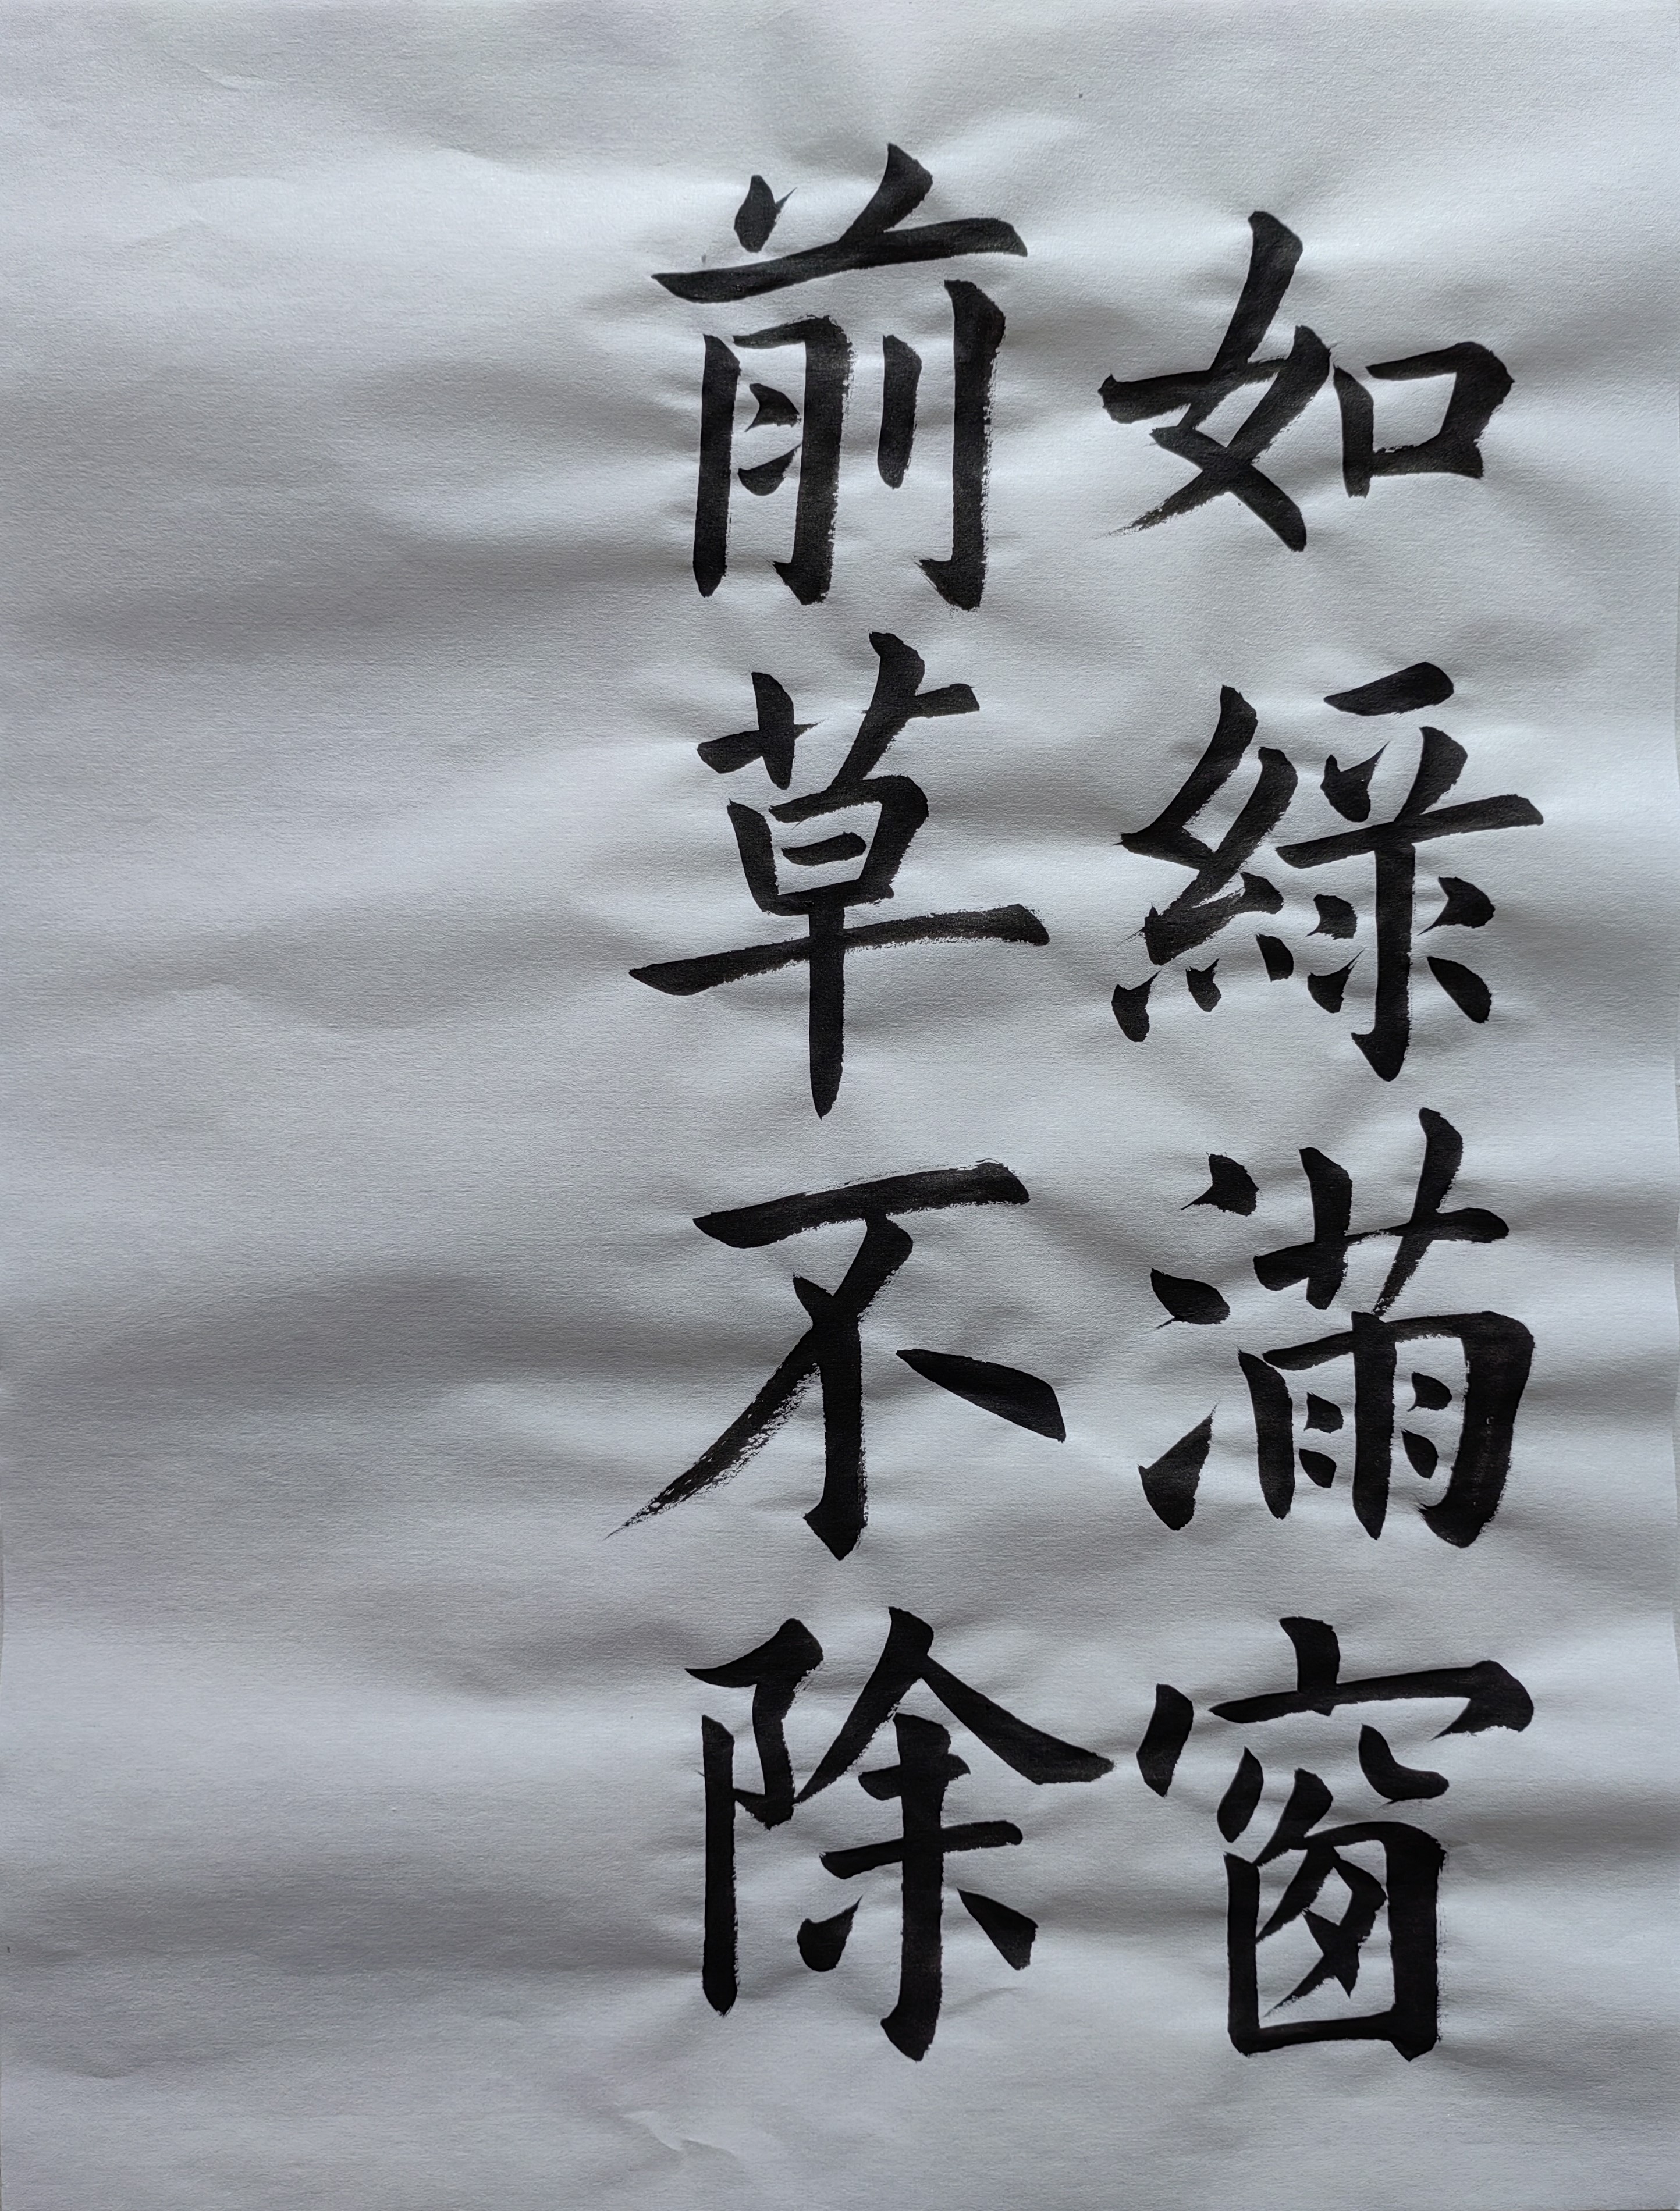 如綠滿窗
前草不除